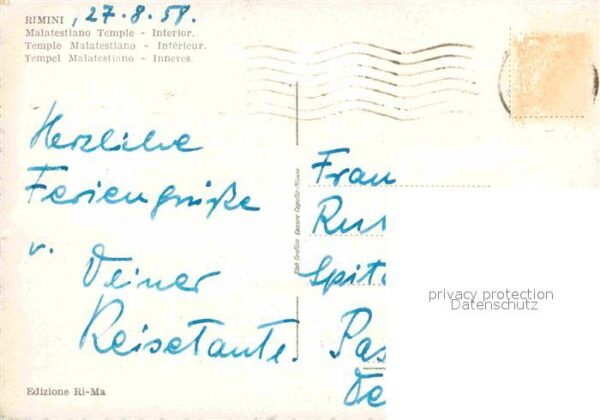 RIMINI, 27.8.58.
Malatestiano Temple - Interior.
Temple Malatestiano - Intérieur.
Tempel Malatestiano - Inneres.
Herzliche
Feriengrüße
v. Deiner
Reisetante.
Edizione Ri-Ma
Frau
Rus
Spit
Pas
privacy protection
Datenschutz